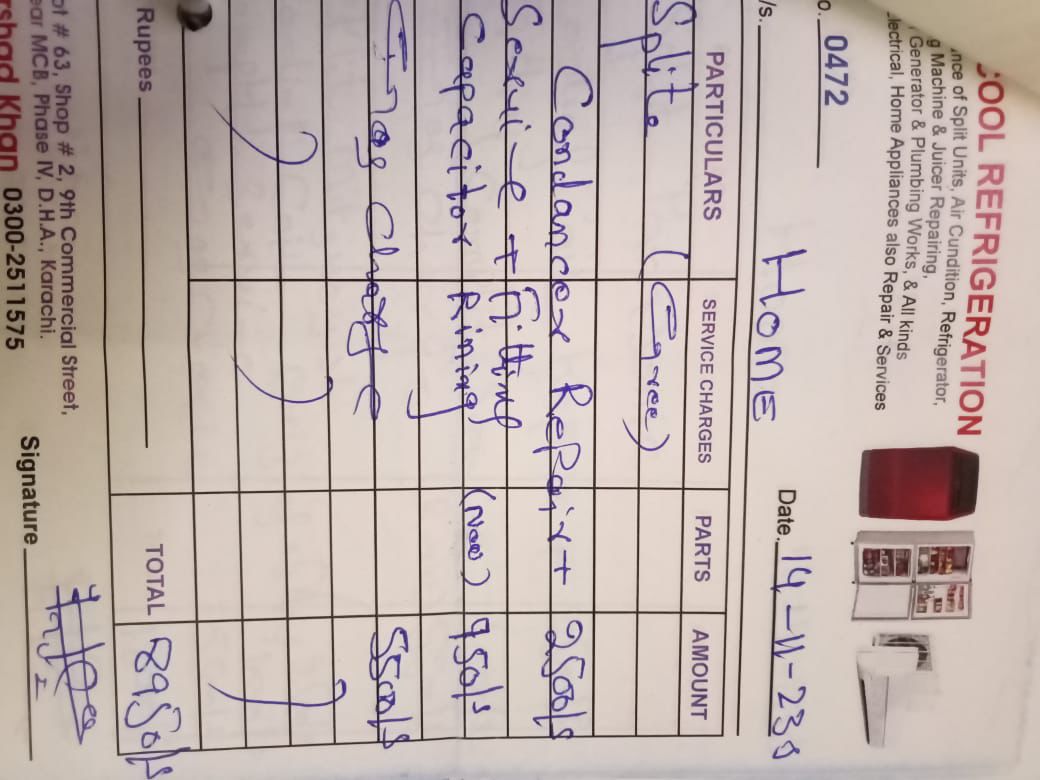 COOL REFRIGERATION
nce of Split Units, Air Cundition, Refrigerator,
g Machine & Juicer Repairing,
Generator & Plumbing Works, & All kinds
lectrical, Home Appliances also Repair & Services
o. 0472 Date. 14-11-23
/s. HOME
PARTICULARS SERVICE CHARGES PARTS AMOUNT
Split (Garee)
Condancer Repair + 2500/s
Servi-e + Fitting
Capacitor Rining (New) 950/s
Gas Charge 5500/s
Rupees TOTAL 8950/s
ot # 63, Shop # 2, 9th Commercial Street,
ear MCB, Phase IV, D.H.A., Karachi.
rshad Khan 0300-2511575 Signature